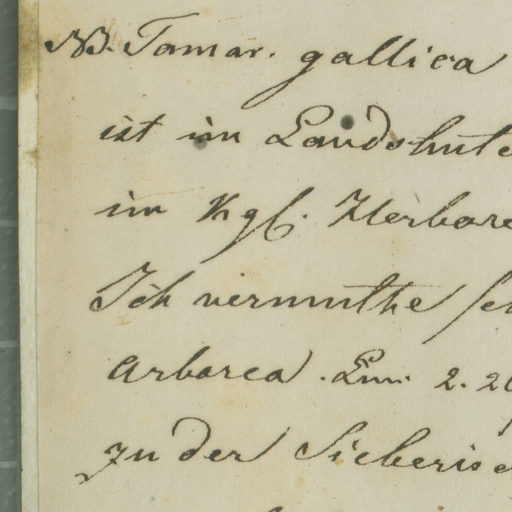 NB. Tamar. gallica
ist im Landshute
im Kgl. Herbare
Ich vermuthe
arborea. 2. 26
zu der Sieberisc